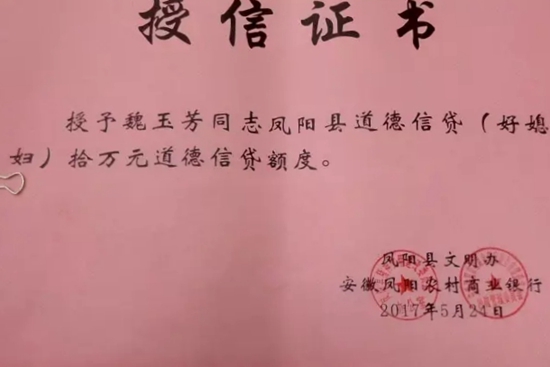 授信证书
授予魏玉芳同志凤阳县道德信贷（好媳
妇）拾万元道德信贷额度。
凤阳县文明办
安徽凤阳农村商业银行
2017年5月24日